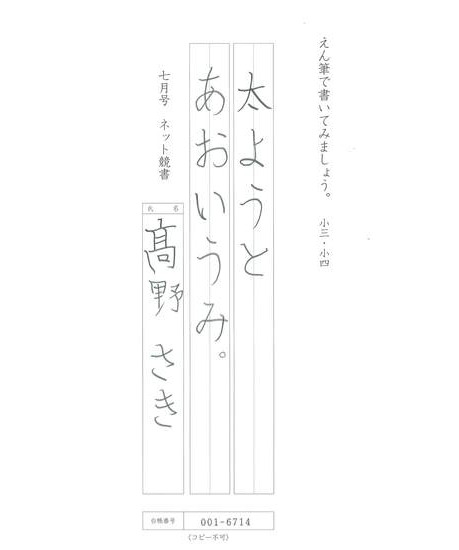 えん筆で書いてみましょう。 小三・小四
太ようと
あおいうみ。
七月号 ネット競書
氏 名
髙野 さき
会員番号 001-6714
(コピー不可)